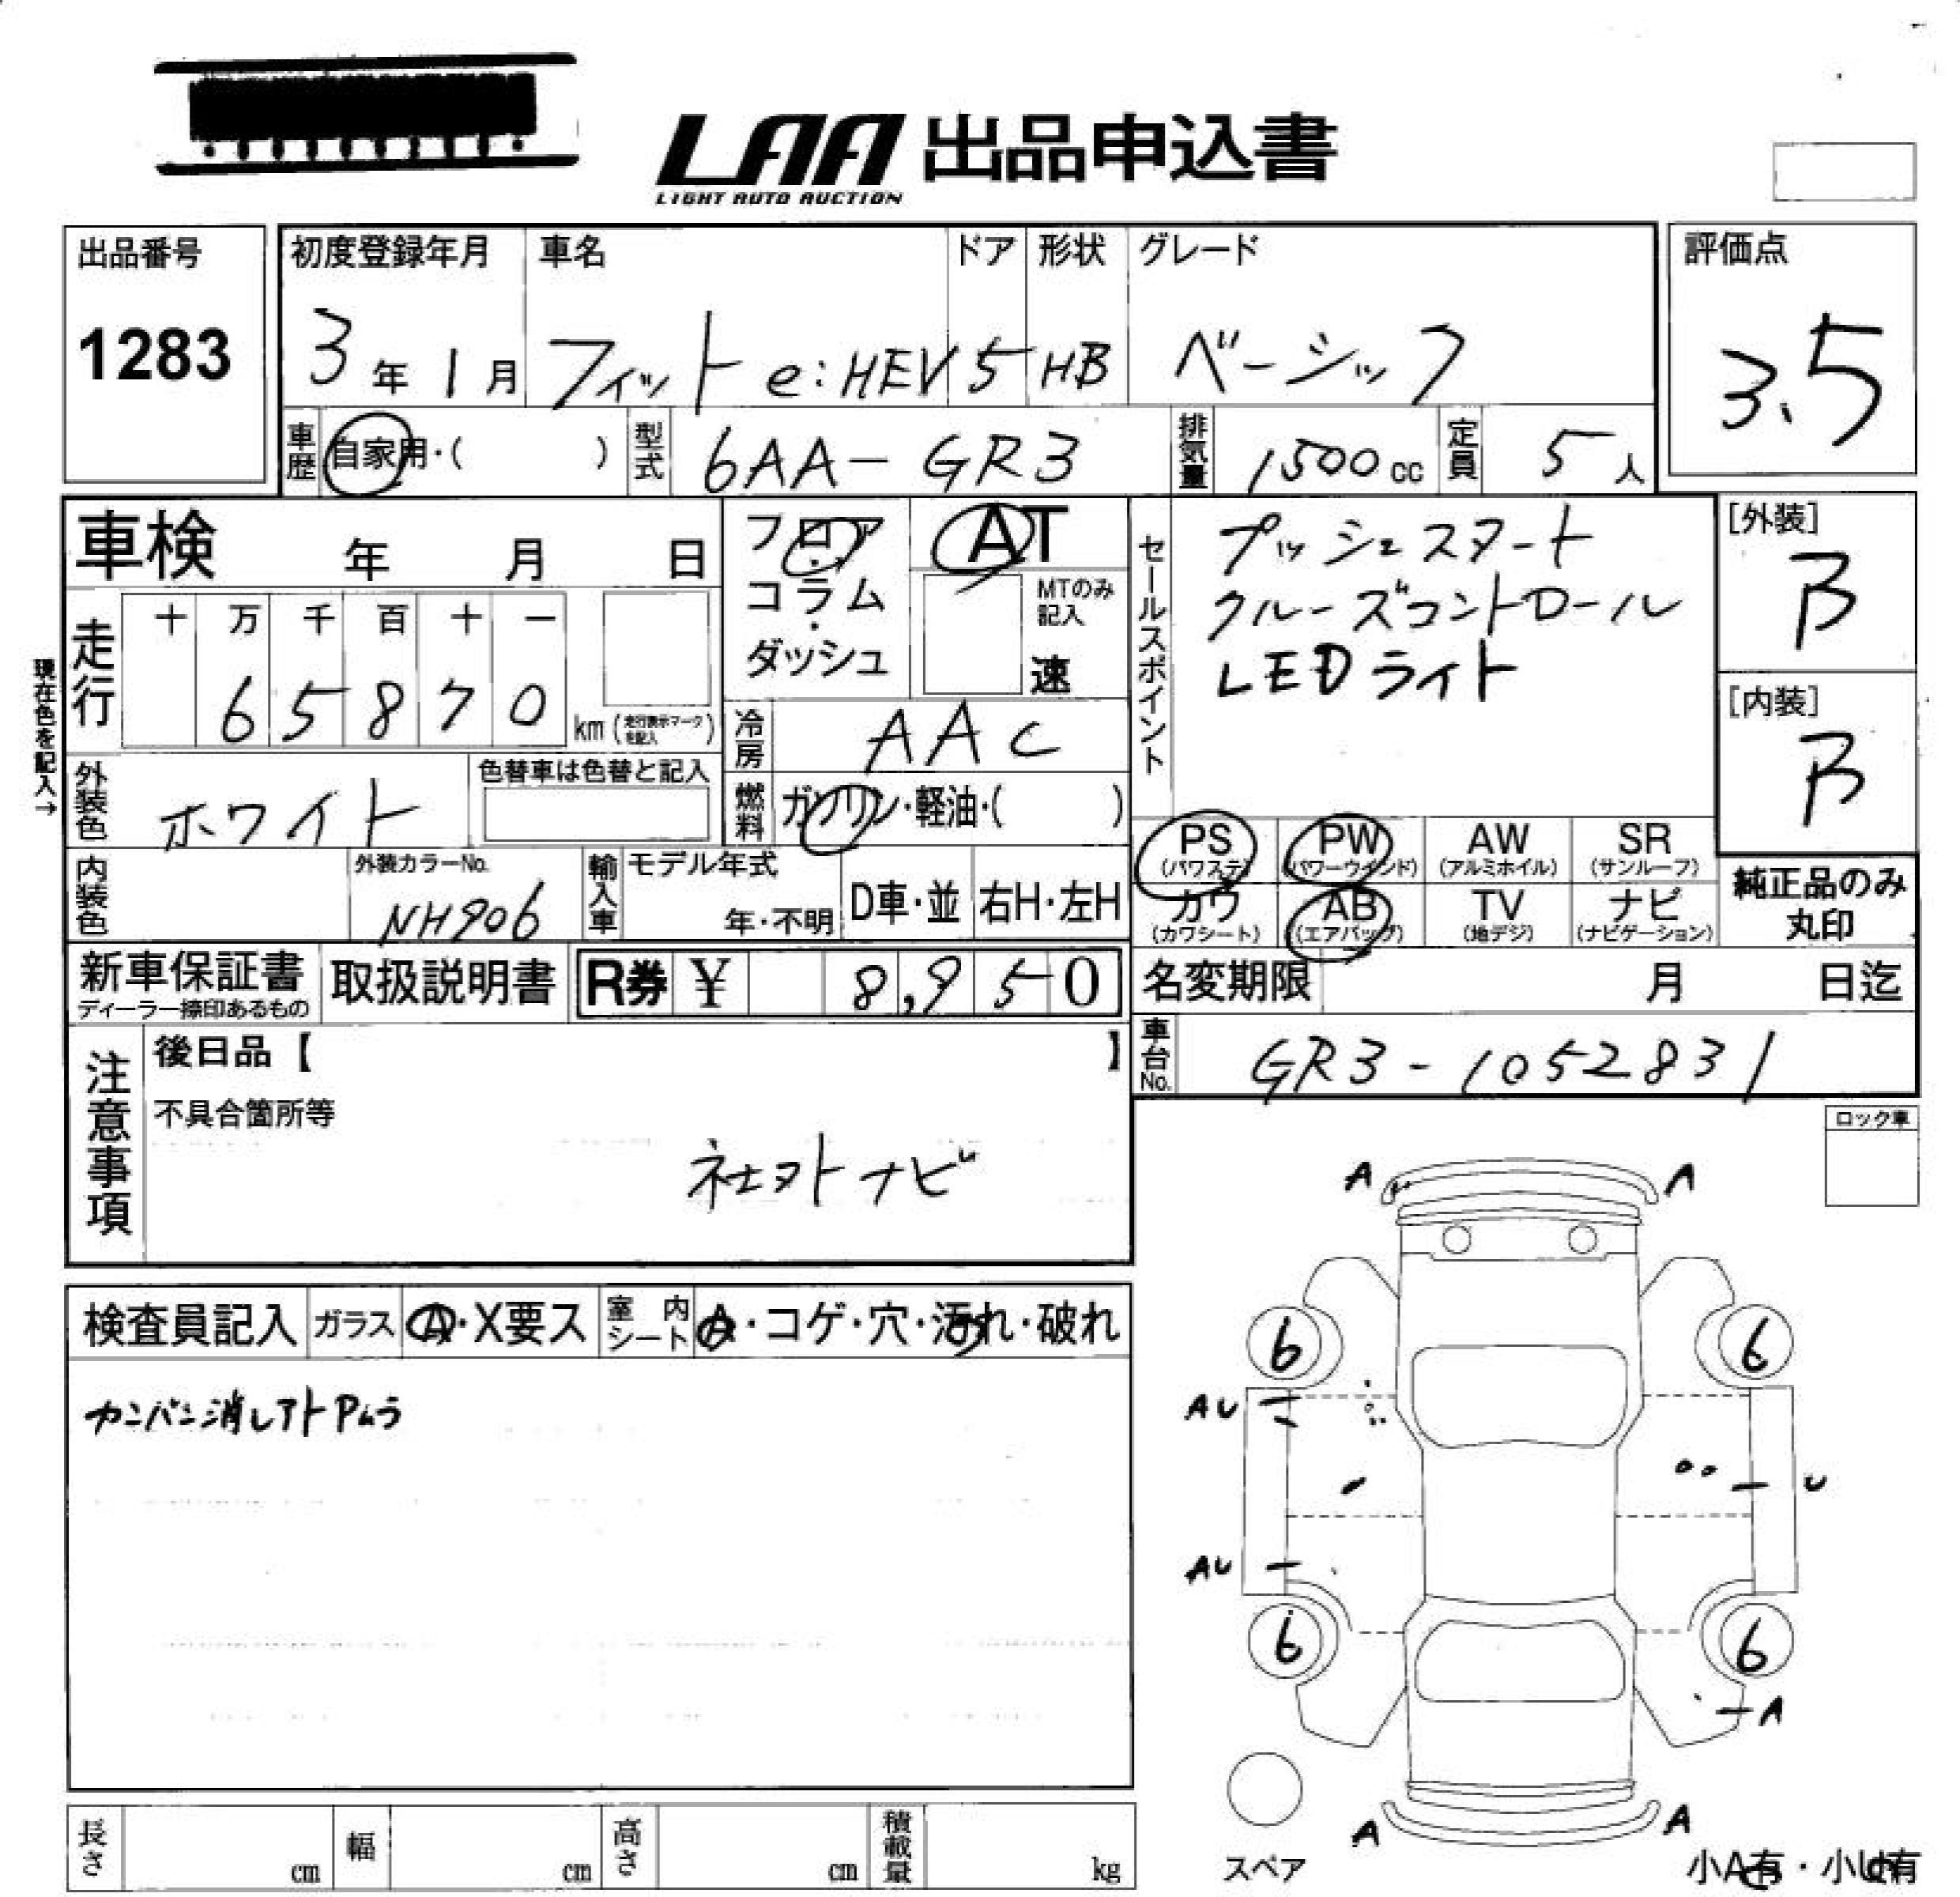 LAA 出品申込書
LIGHT AUTO AUCTION
出品番号
1283
初度登録年月
3年1月
車名
フィット e:HEV
ドア
5
形状
HB
グレード
ベーシック
評価点
3.5
車歴
自家用・( )
型式
6AA-GR3
排気量
1500cc
定員
5人
車検 年 月 日
フロア・コラム・ダッシュ
AT
MTのみ記入
速
セールスポイント
プッシュスタート
クルーズコントロール
LEDライト
[外装]
B
[内装]
B
現在色を記入→
走行
十 万 千 百 十 一
6 5 8 7 0 km (走行表示マークを記入)
冷房
AAC
外装色
ホワイト
色替車は色替と記入
燃料
ガソリン・軽油・( )
PS (パワステ)
PW (パワーウインド)
AW (アルミホイル)
SR (サンルーフ)
カワ (カワシート)
AB (エアバッグ)
TV (地デジ)
ナビ (ナビゲーション)
純正品のみ丸印
内装色
外装カラーNo.
NH906
輸入車
モデル年式
年・不明
D車・並
右H・左H
新車保証書
ディーラー捺印あるもの
取扱説明書
R券 ¥ 8,950
名変期限 月 日迄
車台No.
GR3-1052831
注意事項
後日品【 】
不具合箇所等
社外ナビ
ロック車
検査員記入
ガラス
A・X要ス
室内シート
A・コゲ・穴・汚れ・破れ
カンバン消しアトPムラ
A A
6 6
AU
U
AU
6 6
A
A A
スペア
小A有・小U有
長さ cm
幅 cm
高さ cm
積載量 kg